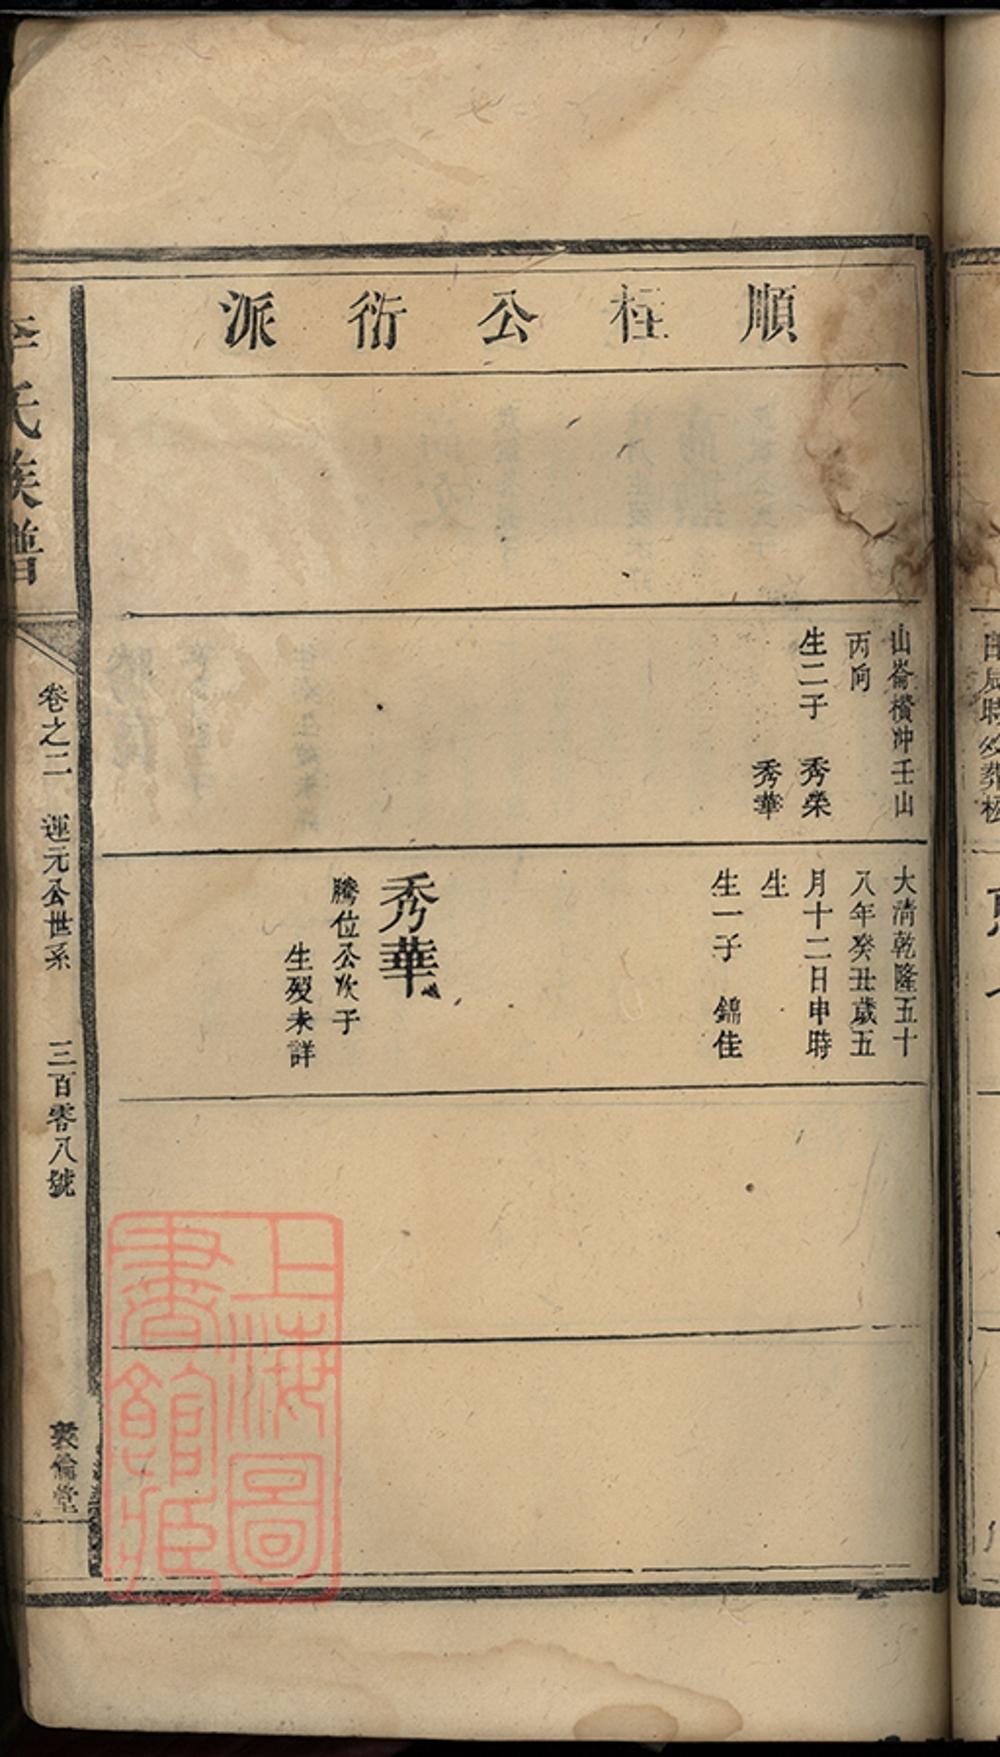 順柱公衍派
山崙橫冲壬山
丙向
生二子 秀榮
秀華
大清乾隆五十
八年癸丑歲五
月十二日申時
生
生一子 錦佳
秀華
騰位公次子
生歿未詳
李氏族譜
卷之二 運元公世系 三百零八號
敦倫堂
上海圖書館藏